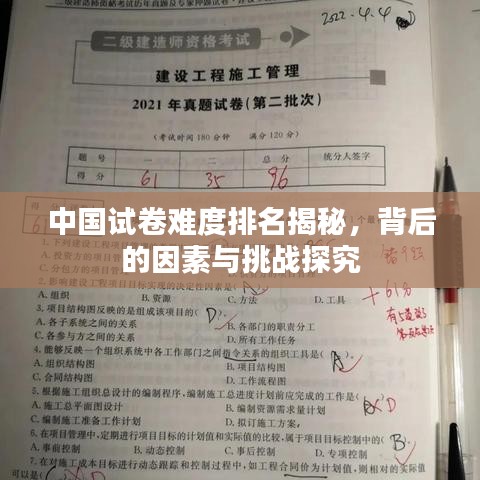 二级建造师资格考试历年真题及专家押题试卷·建设
2022.4.4
二级建造师资格考试
建设工程施工管理
2021年真题试卷(第二批次)
(考试时间180分钟 满分120分)
题号 一 二 总分 统分人签字
得分 61 35 96
中国试卷难度排名揭秘，背后
的因素与挑战探究
A.组织 B.资源 C.方法 D.工具
3.项目结构图反映的是组成该项目的( D
A.各子系统之间的关系 B.各部门的职责分工
C.各参与方之间的关系 D.所有工作任务
4.能够反映一个组织系统中各工作部门之间指令关系的组织工具是( A
A.组织结构图 B.项目结构图
C.合同结构图 D.工作流程图
5.根据施工组织总设计的编制程序,编制施工总进度计划前应完成的工作是(
A.施工总平面图设计 B.编制资源需求量计划
C.编制施工准备工作计划 D.拟订施工方案
6.在项目管理中,定期进行项目目标的计划值和实际值的比较,属于项目目标控制中的( B
A.事前控制 B.动态控制 C.事后控制 D.专项控制
7.在对施工成本目标进行动态跟踪和控制过程中,如工程合同价为计划值,则相对的实际值
可以是(
+61分